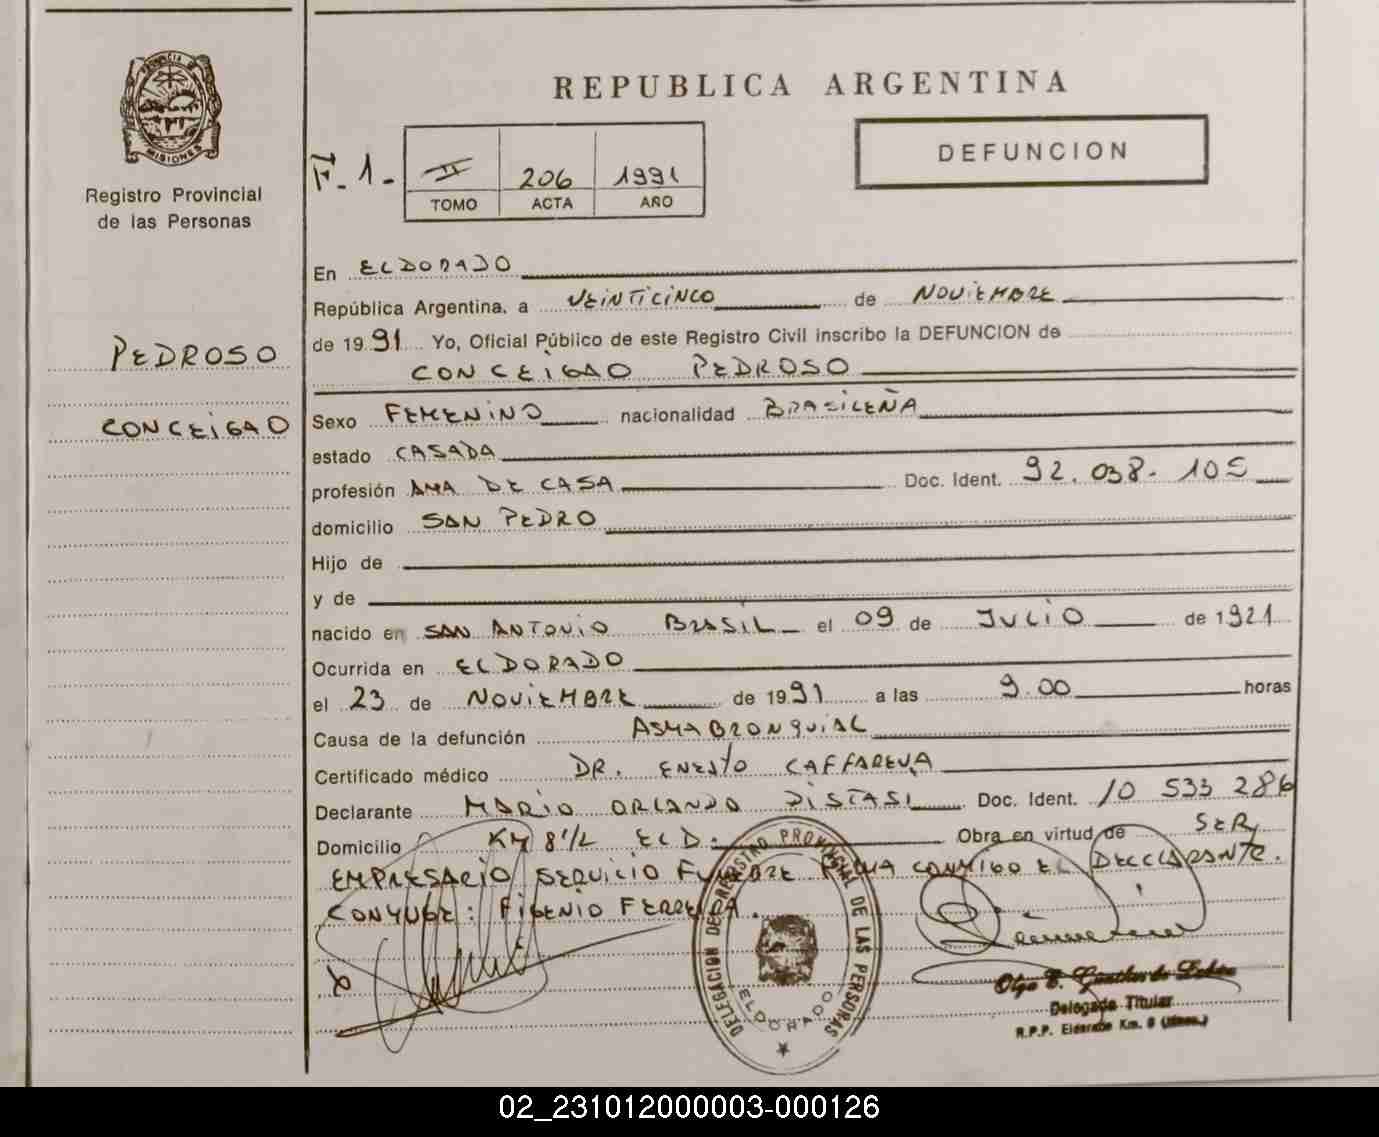 PROVINCIA DE
MISIONES
Registro Provincial
de las Personas
REPUBLICA ARGENTINA
DEFUNCION
F. 1. II 206 1991
TOMO ACTA AÑO
En ELDORADO
República Argentina, a VEINTICINCO de NOVIEMBRE
de 1991 Yo, Oficial Público de este Registro Civil inscribo la DEFUNCION de
PEDROSO
CONCEIGAO PEDROSO
CONCEIGAO
Sexo FEMENINO nacionalidad BRASILEÑA
estado CASADA
profesión AMA DE CASA Doc. Ident. 92.038.105
domicilio SAN PEDRO
Hijo de
y de
nacido en SAN ANTONIO BRASIL el 09 de JULIO de 1921
Ocurrida en ELDORADO
el 23 de NOVIEMBRE de 1991 a las 9.00 horas
Causa de la defunción ASMA BRONQUIAL
Certificado médico DR. ENESTO CAFFARENA
Declarante MARIO ORLANDO DISTASI Doc. Ident. 10 533 286
Domicilio KM 8 1/2 ELD. Obra en virtud de SER
EMPRESARIO SERVICIO FUNEBRE FIRMA CONMIGO EL DECCLARANTE.
CONYUGE: FIGENIO FERREIRA.
DELEGACION DEL REGISTRO PROVINCIAL DE LAS PERSONAS
ELDORADO
Olga E.
Delegada Titular
R.P.P. Eldorado Km. 9 (Mnes.)
02_231012000003-000126